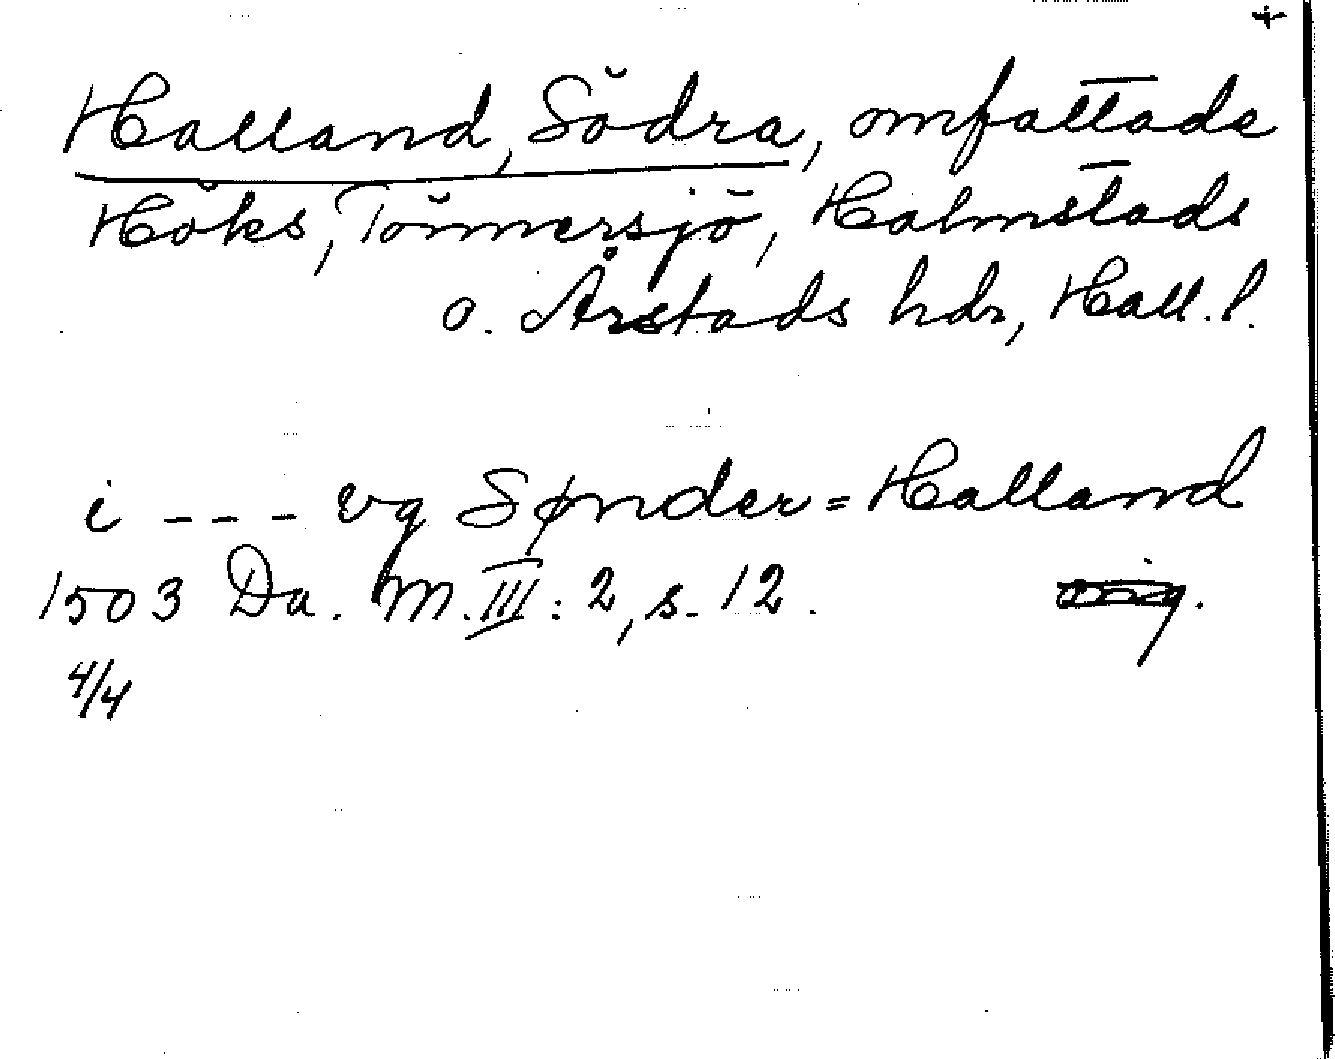 +
Halland, Södra, omfattade
Höks, Tönnersjö, Halmstads
o. Årstads hdr, Hall. l.
i - - - vg Sønder=Halland
1503 Da. M. III: 2, s. 12.
4/4